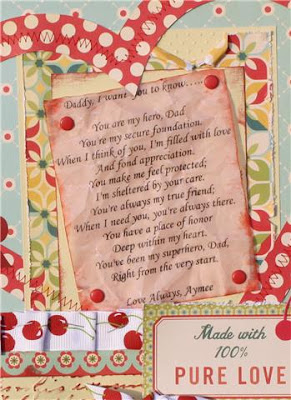 Daddy, I want you to know.....
You are my hero, Dad
You're my secure foundation.
When I think of you, I'm filled with love
And fond appreciation.
You make me feel protected;
I'm sheltered by your care.
You're always my true friend;
When I need you, you're always there.
You have a place of honor
Deep within my heart.
You've been my superhero, Dad,
Right from the very start.
Love Always, Aymee
Made with
100%
PURE LOVE